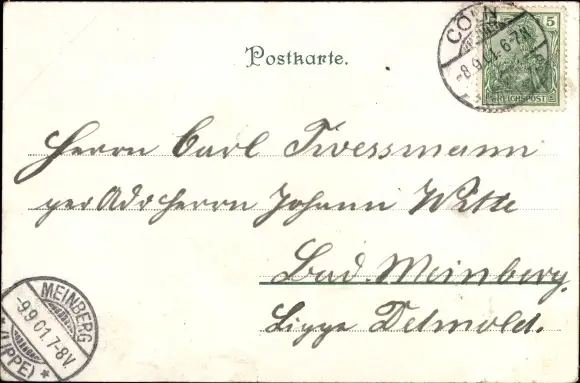 Postkarte.
CÖLN
-8.9.01. 6-7N.
5
REICHSPOST
Herrn Carl Twessmann
per Adr Herrn Johann Witte
Bad Meinberg.
Lippe Detmold.
MEINBERG
-9.9.01. 7-8V.
(LIPPE) *